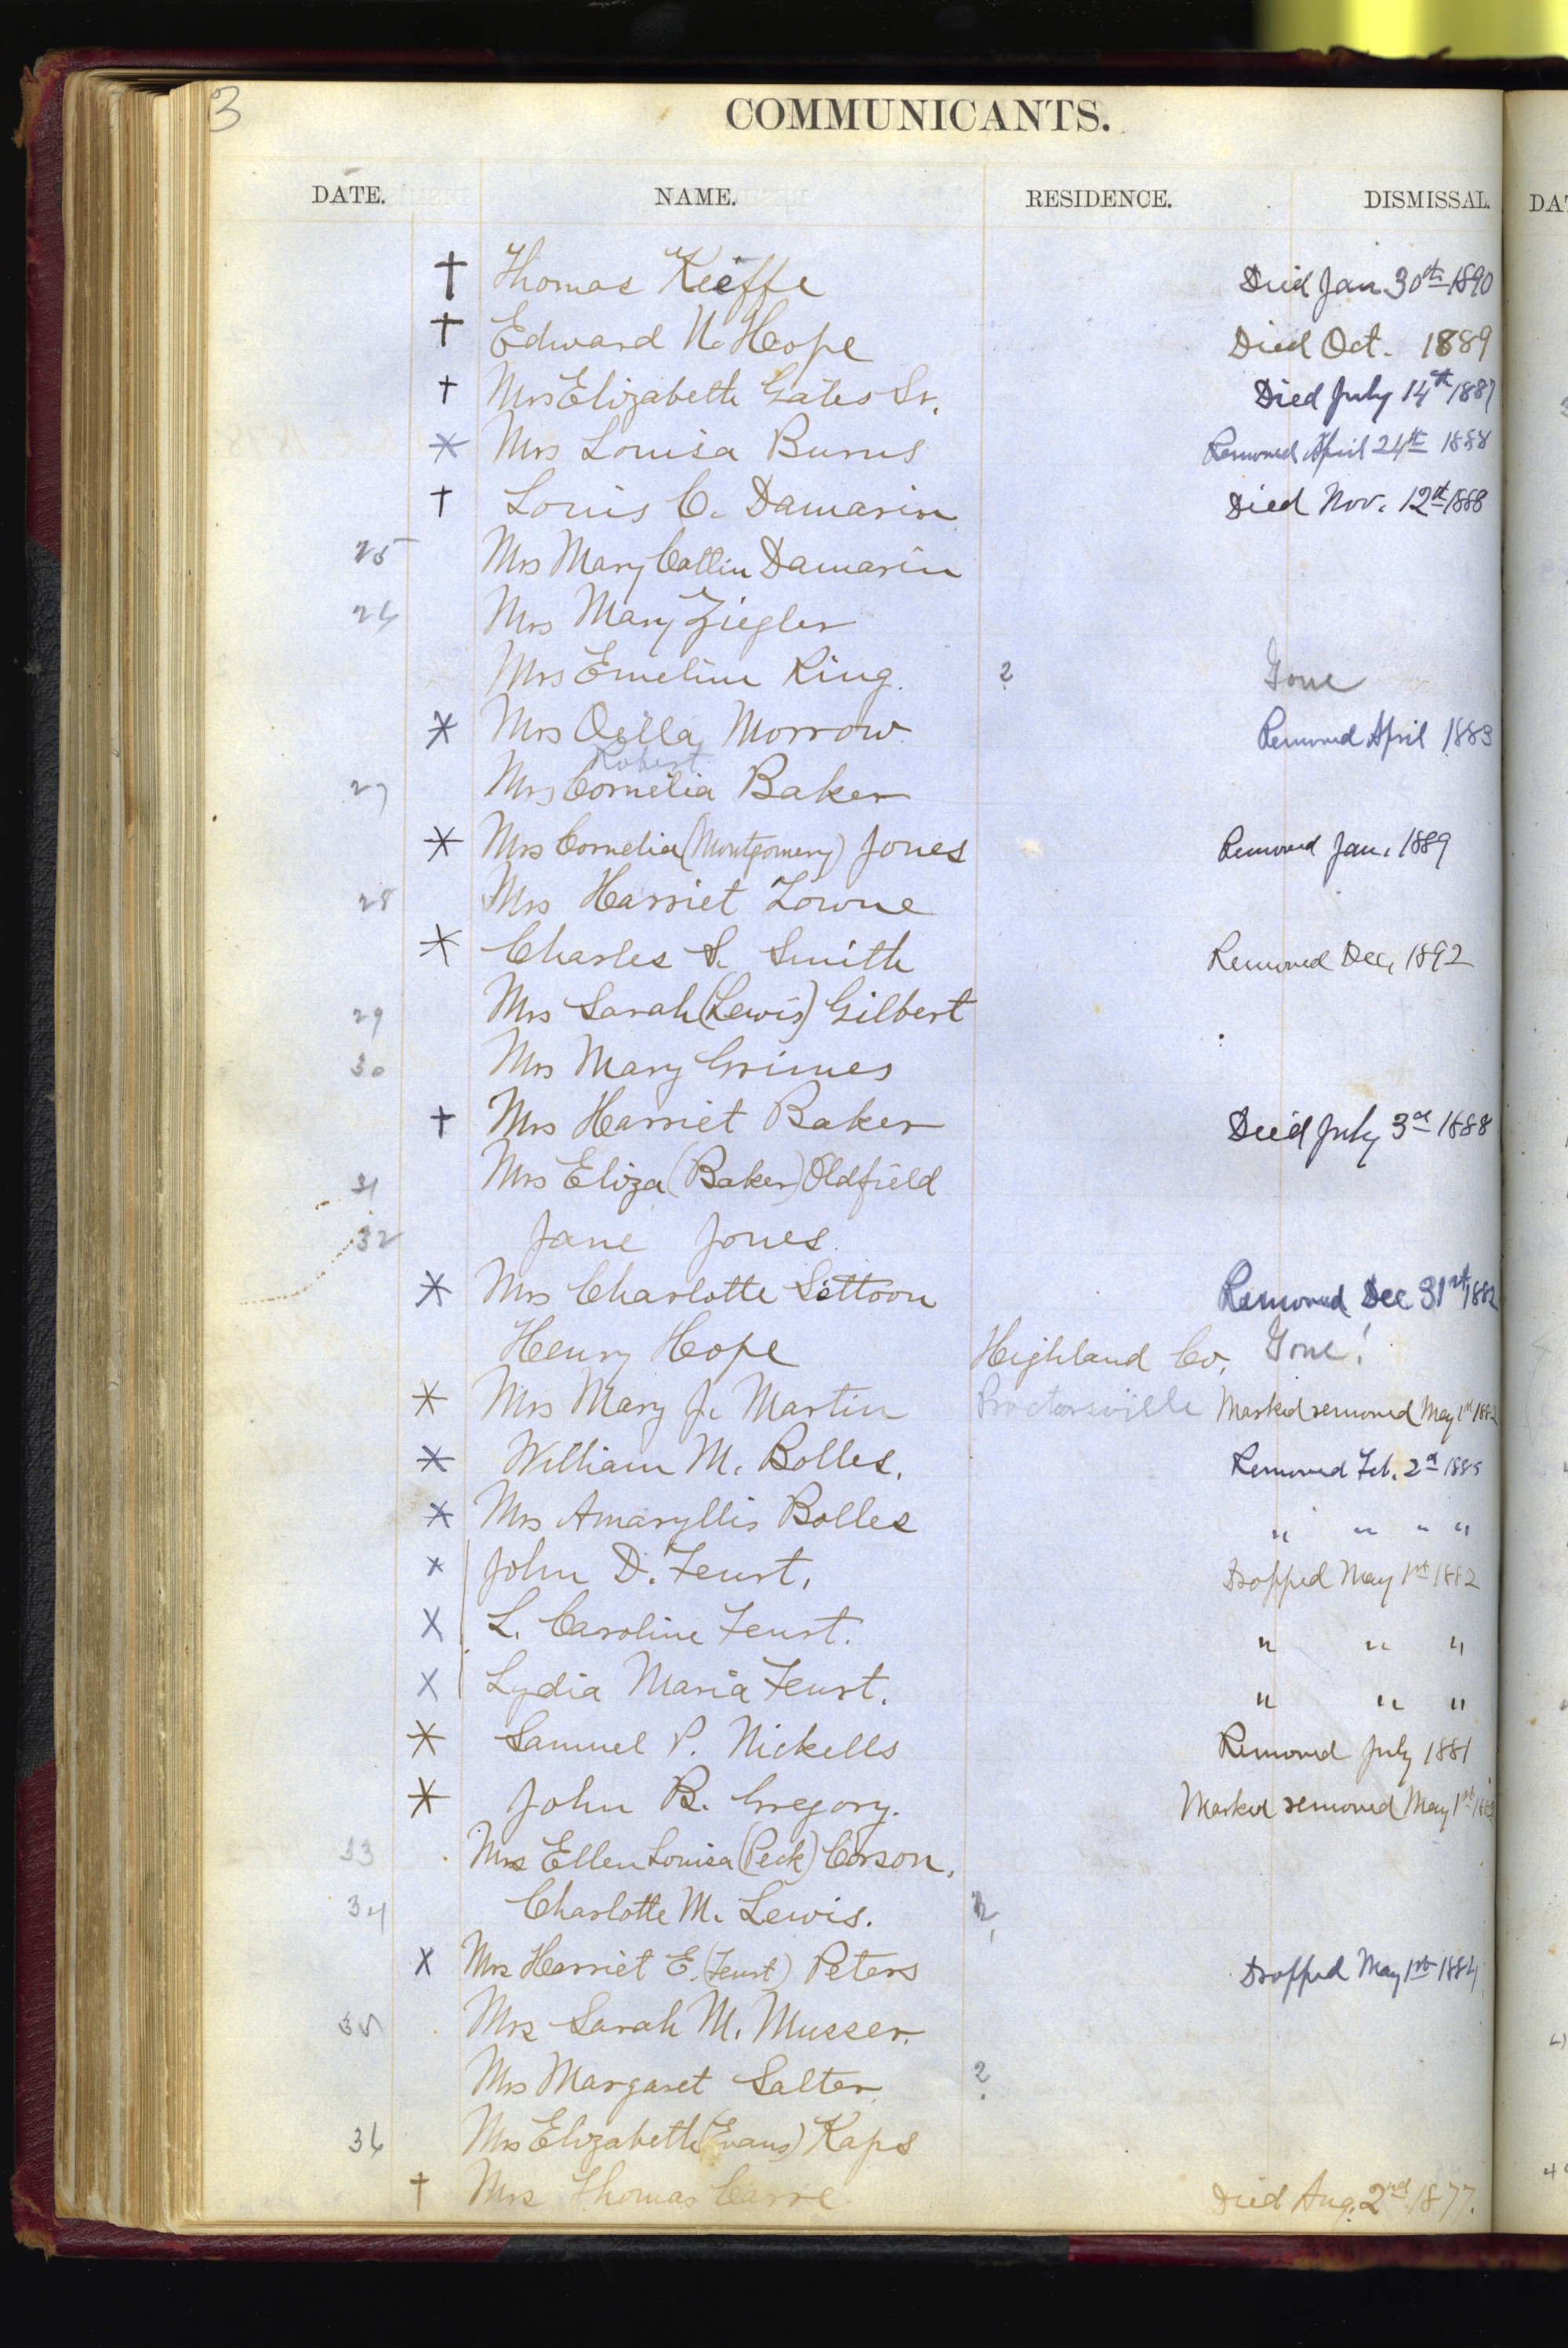 3
COMMUNICANTS.
DATE. NAME. RESIDENCE. DISMISSAL. DAT
† Thomas Kieffe Died Jan 30th 1890
† Edward N. Hope Died Oct. 1889
† Mrs Elizabeth Gates Sr. Died July 14th 1887
* Mrs Louisa Burns Removed April 24th 1888
† Louis C. Damarin Died Nov. 12th 1888
25 Mrs Mary Catlin Damarin
26 Mrs Mary Ziegler
Mrs Emeline King. ? Gone
* Mrs Morrow Removed April 1883
Robert
27 Mrs Cornelia Baker
* Mrs Cornelia (Montgomery) Jones Removed Jan. 1889
28 Mrs Harriet Towne
* Charles S. Smith Removed Dec, 1892
29 Mrs Sarah (Lewis) Gilbert
30 Mrs Mary Grimes
† Mrs Harriet Baker Died July 3d 1888
31 Mrs Eliza (Baker) Oldfield
32 Jane Jones.
* Mrs Charlotte Sittoon Removed Dec 31st 1882
Henry Hope Highland Co, Gone!
* Mrs Mary J. Martin Proctorsville Marked removed May 1st 1882
* William M. Bolles. Removed Feb. 2d 1885
* Mrs Amaryllis Bolles " " " "
x John D. Feurt. Dropped May 1st 1882
X L. Caroline Feurt. " " "
X Lydia Maria Feurt. " " "
* Samuel P. Nickells Removed July 1881
* John B. Gregory. Marked removed May 1st 1882
33 Mrs Ellen Louisa (Peck) Corson.
34 Charlotte M. Lewis. ?
X Mrs Harriet E. (Feurt) Peters Dropped May 1st 1884
35 Mrs Sarah M. Musser.
Mrs Margaret Salter ?
36 Mrs Elizabeth (Evans) Kaps
† Mrs Thomas Carre Died Aug. 2nd 1877.